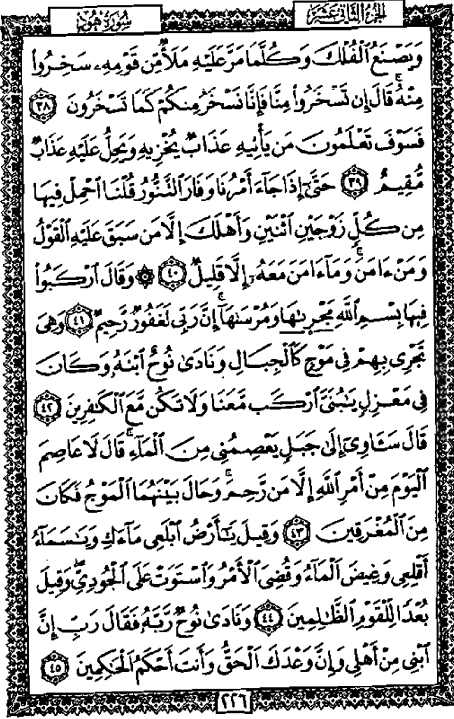 سورة هود
الجزء الثاني عشر
وَيَصْنَعُ ٱلْفُلْكَ وَكُلَّمَا مَرَّ عَلَيْهِ مَلَأٌ مِّن قَوْمِهِۦ سَخِرُوا۟
مِنْهُ ۚ قَالَ إِن تَسْخَرُوا۟ مِنَّا فَإِنَّا نَسْخَرُ مِنكُمْ كَمَا تَسْخَرُونَ ٣٨
فَسَوْفَ تَعْلَمُونَ مَن يَأْتِيهِ عَذَابٌ يُخْزِيهِ وَيَحِلُّ عَلَيْهِ عَذَابٌ
مُّقِيمٌ ٣٩ حَتَّىٰٓ إِذَا جَآءَ أَمْرُنَا وَفَارَ ٱلتَّنُّورُ قُلْنَا ٱحْمِلْ فِيهَا
مِن كُلٍّ زَوْجَيْنِ ٱثْنَيْنِ وَأَهْلَكَ إِلَّا مَن سَبَقَ عَلَيْهِ ٱلْقَوْلُ
وَمَنْ ءَامَنَ ۚ وَمَآ ءَامَنَ مَعَهُۥٓ إِلَّا قَلِيلٌ ٤٠ ۞ وَقَالَ ٱرْكَبُوا۟
فِيهَا بِسْمِ ٱللَّهِ مَجْر۪ىٰهَا وَمُرْسَىٰهَآ ۚ إِنَّ رَبِّى لَغَفُورٌ رَّحِيمٌ ٤١ وَهِىَ
تَجْرِى بِهِمْ فِى مَوْجٍ كَٱلْجِبَالِ وَنَادَىٰ نُوحٌ ٱبْنَهُۥ وَكَانَ
فِى مَعْزِلٍ يَٰبُنَىَّ ٱرْكَب مَّعَنَا وَلَا تَكُن مَّعَ ٱلْكَٰفِرِينَ ٤٢
قَالَ سَـَٔاوِىٓ إِلَىٰ جَبَلٍ يَعْصِمُنِى مِنَ ٱلْمَآءِ ۚ قَالَ لَا عَاصِمَ
ٱلْيَوْمَ مِنْ أَمْرِ ٱللَّهِ إِلَّا مَن رَّحِمَ ۚ وَحَالَ بَيْنَهُمَا ٱلْمَوْجُ فَكَانَ
مِنَ ٱلْمُغْرَقِينَ ٤٣ وَقِيلَ يَٰٓأَرْضُ ٱبْلَعِى مَآءَكِ وَيَٰسَمَآءُ
أَقْلِعِى وَغِيضَ ٱلْمَآءُ وَقُضِىَ ٱلْأَمْرُ وَٱسْتَوَتْ عَلَى ٱلْجُودِىِّ ۖ وَقِيلَ
بُعْدًا لِّلْقَوْمِ ٱلظَّٰلِمِينَ ٤٤ وَنَادَىٰ نُوحٌ رَّبَّهُۥ فَقَالَ رَبِّ إِنَّ
ٱبْنِى مِنْ أَهْلِى وَإِنَّ وَعْدَكَ ٱلْحَقُّ وَأَنتَ أَحْكَمُ ٱلْحَٰكِمِينَ ٤٥
٢٢٦